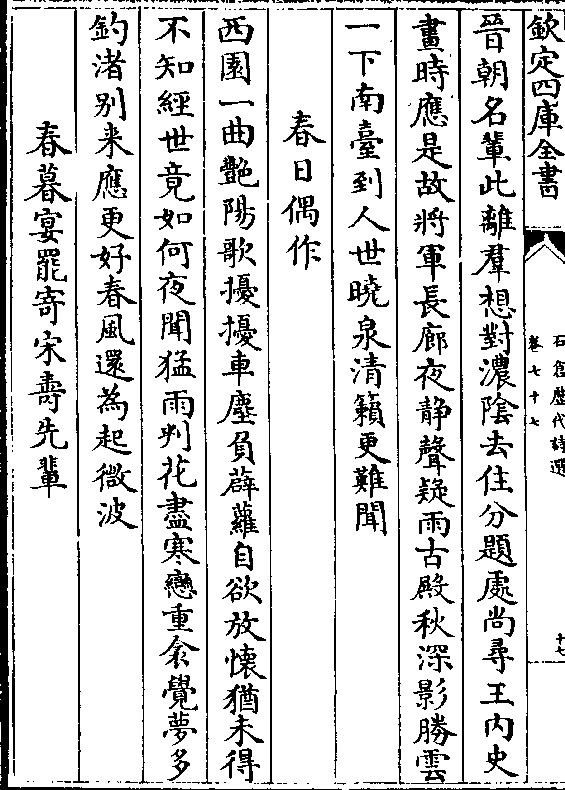 欽定四庫全書
石倉歷代詩選
卷七十七
十七
晉朝名輩此離羣想對濃陰去住分題處尚尋王內史
畫時應是故將軍長廊夜静聲疑雨古殿秋深影勝雲
一下南臺到人世曉泉清籟更難聞
春日偶作
西園一曲艶陽歌擾擾車塵負薜蘿自欲放懷猶未得
不知經世竟如何夜聞猛雨判花盡寒戀重衾覺夢多
釣渚别来應更好春風還為起微波
春暮宴罷寄宋壽先輩